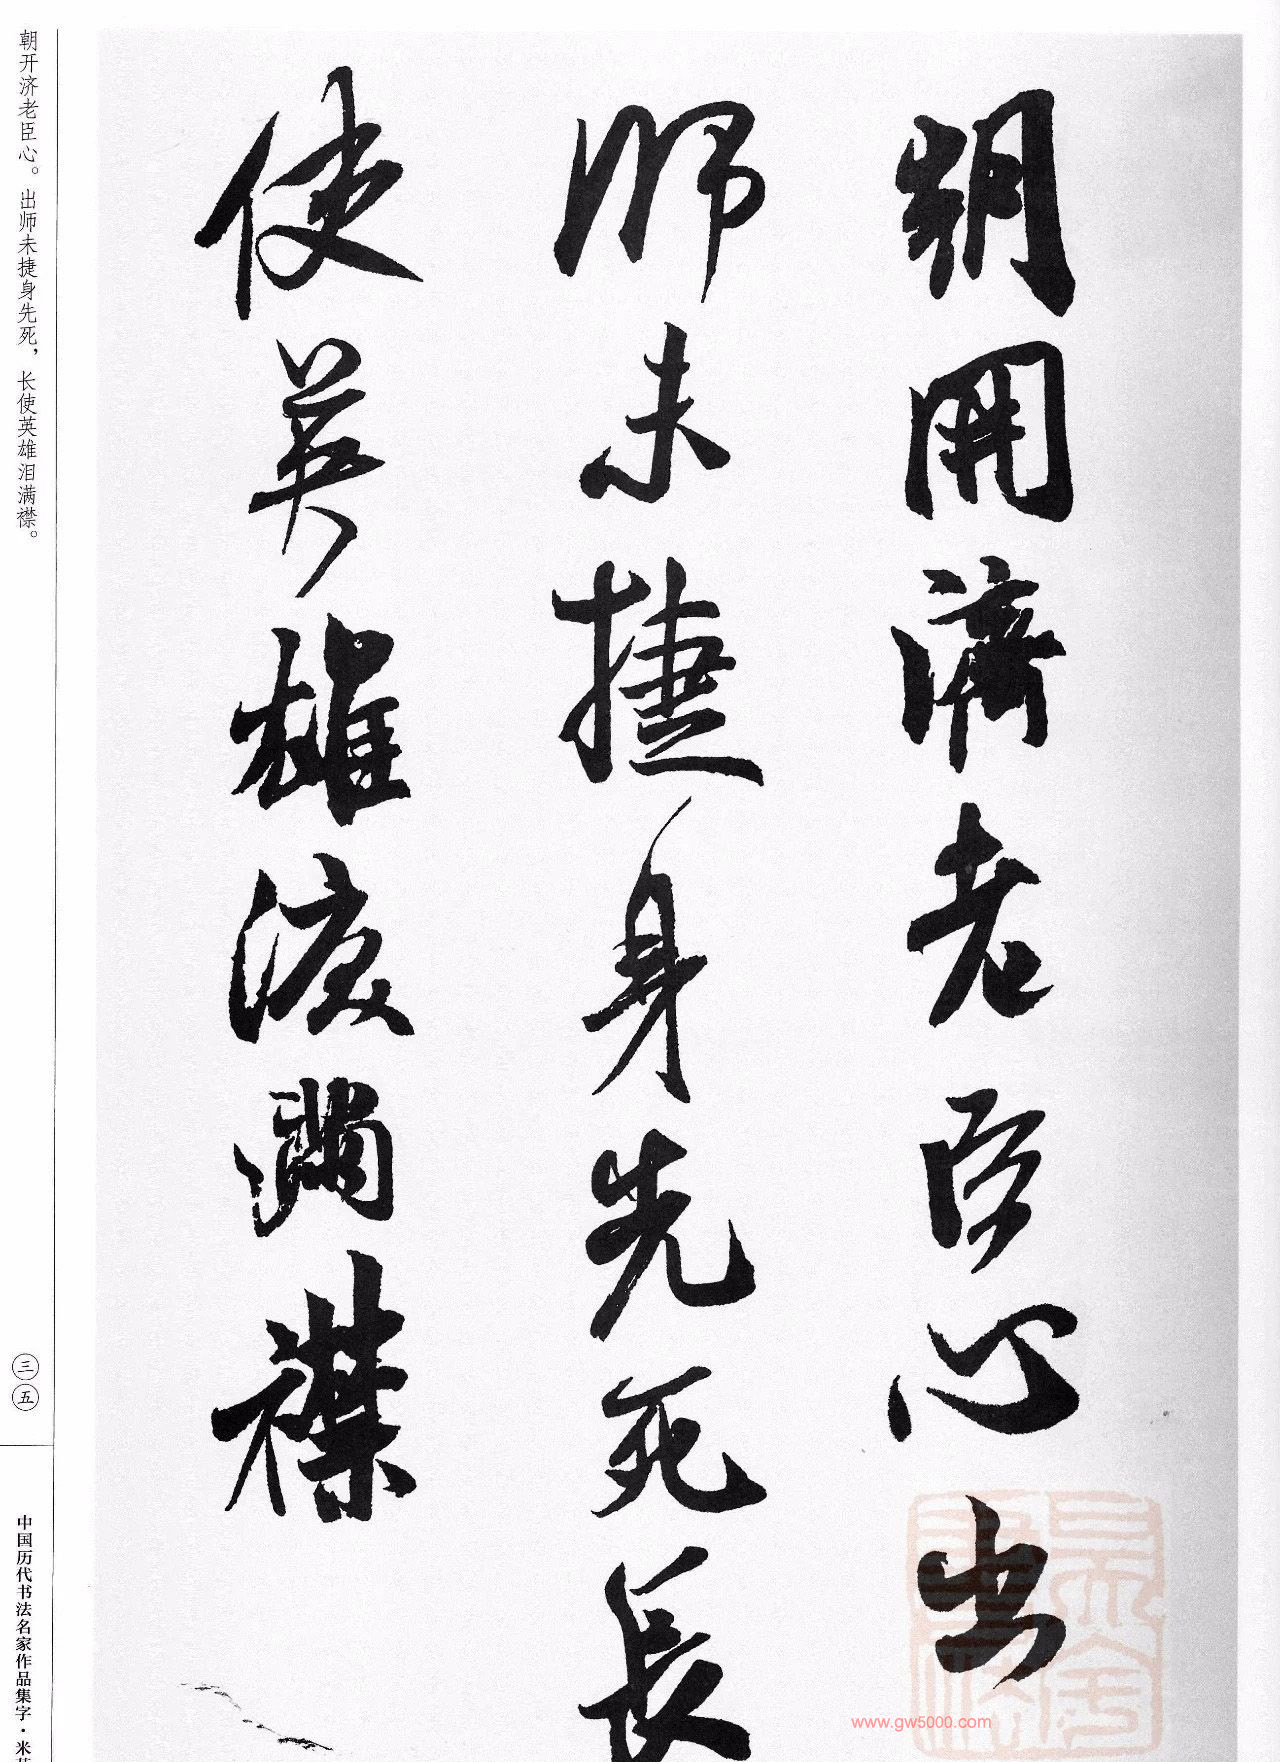 朝開濟老臣心出
師未捷身先死長
使英雄淚滿襟
朝开济老臣心。出师未捷身先死，长使英雄泪满襟。
三五
中国历代书法名家作品集字·米芾
www.gw5000.com